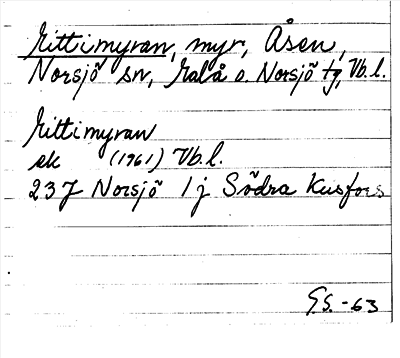 Kittimyran, myr, Åsen,
Norsjö sn, Malå o. Norsjö tg, Vb.l.
Kittimyran
ek (1961) Vb.l.
23 J Norsjö 1 j Södra Kusfors
G.S. -63